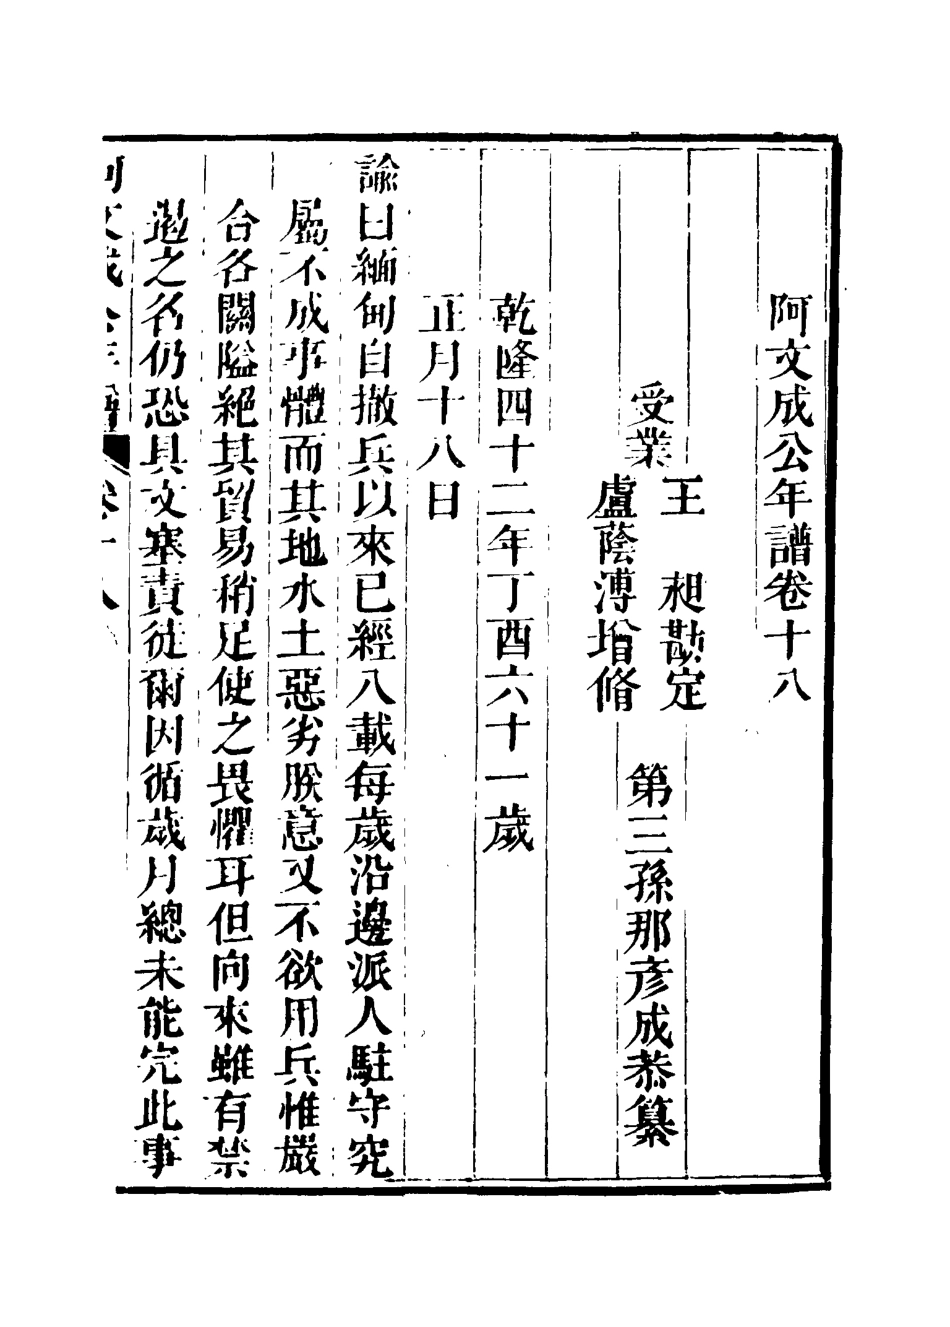 阿文成公年譜卷十八
第三孫那彥成恭纂
受業
王　昶勘定
盧蔭溥增脩
乾隆四十二年丁酉六十一歲
正月十八日
諭曰緬甸自撤兵以來已經八載每歲沿邊派人駐守究
屬不成事體而其地水土惡劣朕意又不欲用兵惟嚴
合各關隘絕其貿易稍足使之畏懼耳但向來雖有禁
遏之名仍恐具文塞責徒爾因循歲月總未能完此事
阿文成公年譜　卷十八